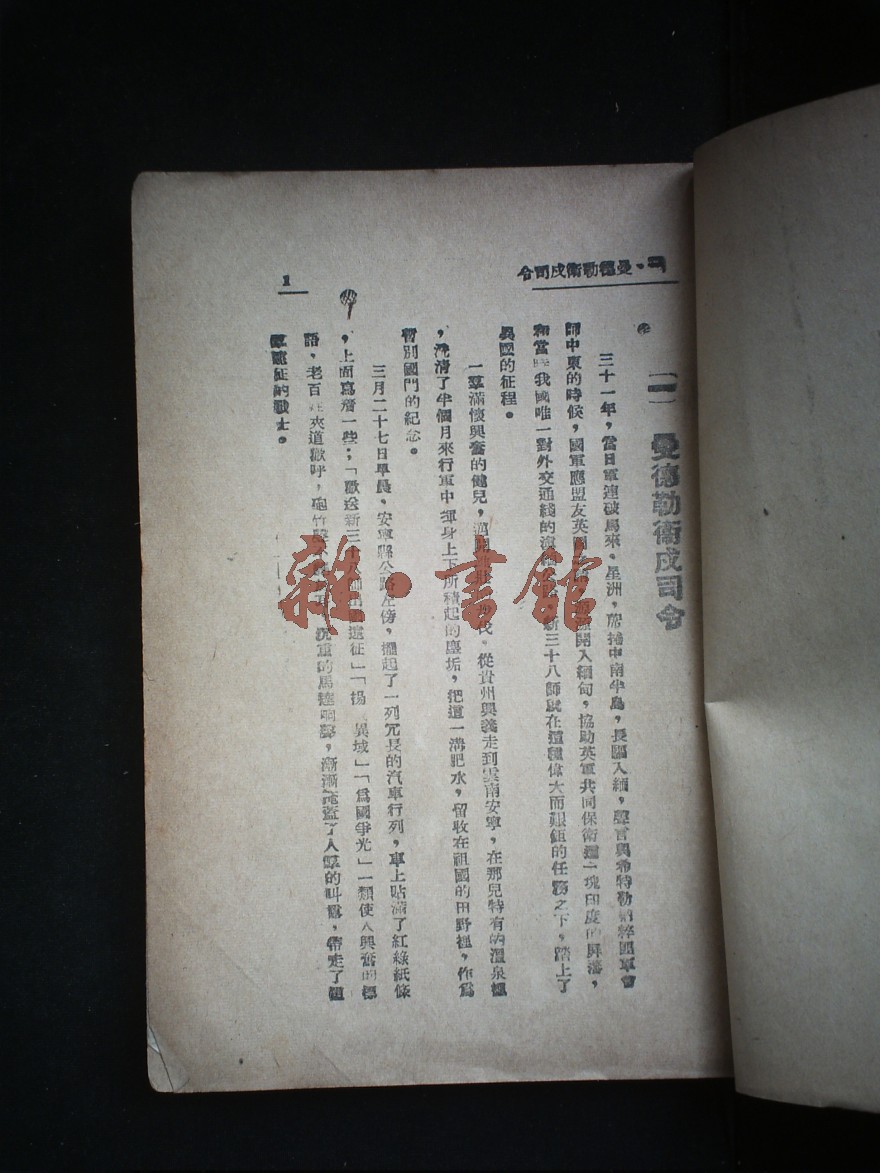 曼德勒衛戍司令
1
(一) 曼德勒衛戍司令
三十一年，當日軍連破馬來、星洲，席捲中南半島，長驅入緬，聲言與希特勒納粹匪軍會
師中東的時候，國軍應盟友英國 開入緬甸，協助英軍共同保衛這一塊印度的屏藩，
和當時我國唯一對外交通綫的滇緬 新三十八師就在這種偉大而艱鉅的任務之下，踏上了
異國的征程。
一羣滿懷興奮的健兒， 從貴州興義走到雲南安寧，在那兒特有的溫泉裡
，洗清了半個月來行軍中渾身上下所積起的塵垢，把這一溝肥水，留收在祖國的田野裡，作爲
暫別國門的紀念。
三月二十七日早晨，安寧縣公路左傍，擺起了一列冗長的汽車行列，車上貼滿了紅綠紙條
，上面寫着一些；「歡送新三十八師出國遠征」「揚 異域」「爲國爭光」一類使人興奮的標
語，老百姓夾道歡呼，砲竹 沉重的馬達响聲，漸漸掩蓋了人羣的叫囂，帶走了這
羣遠征的戰士。
雜·書館